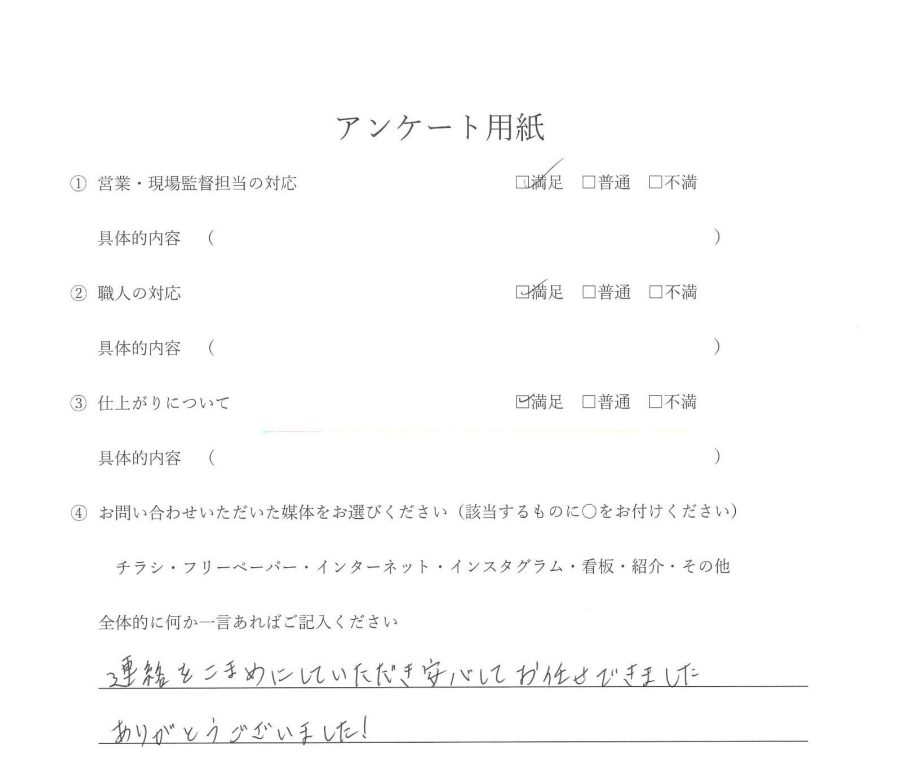 アンケート用紙
① 営業・現場監督担当の対応 ☑満足 □普通 □不満
具体的内容 （ ）
② 職人の対応 ☑満足 □普通 □不満
具体的内容 （ ）
③ 仕上がりについて ☑満足 □普通 □不満
具体的内容 （ ）
④ お問い合わせいただいた媒体をお選びください（該当するものに○をお付けください）
チラシ・フリーペーパー・インターネット・インスタグラム・看板・紹介・その他
全体的に何か一言あればご記入ください
連絡をこまめにしていただき安心してお任せできました
ありがとうございました!